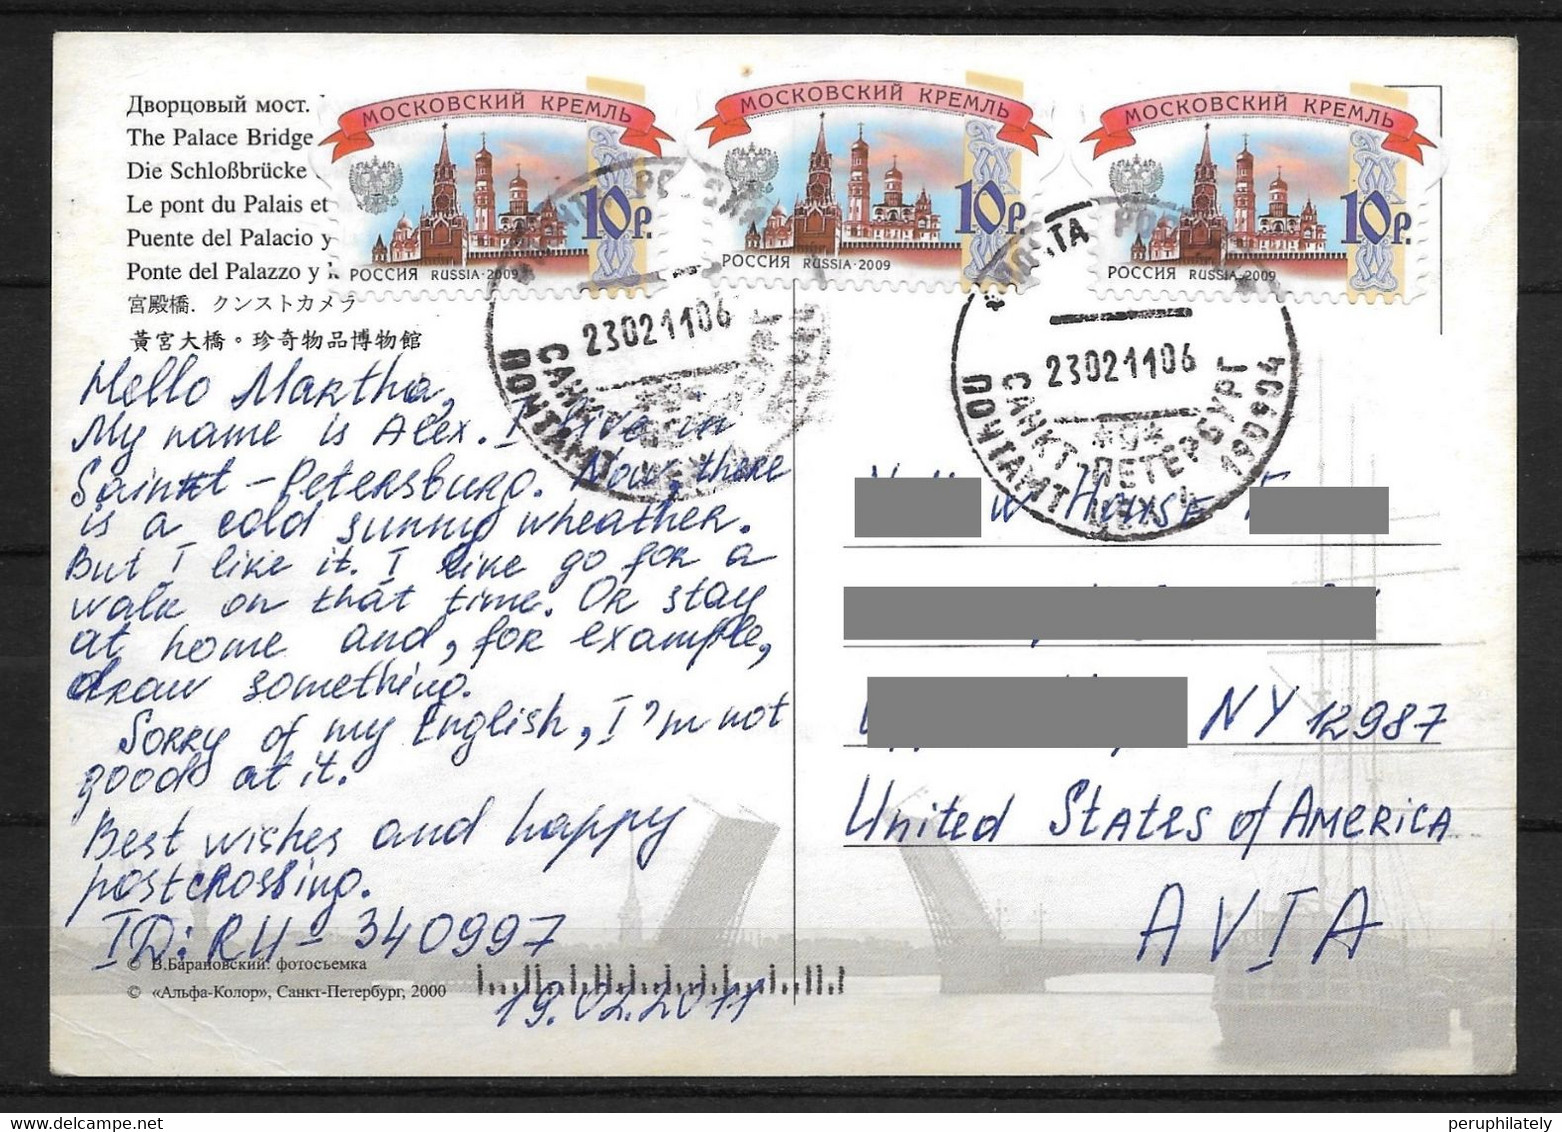 Дворцовый мост.
The Palace Bridge
Die Schloßbrücke
Le pont du Palais et
Puente del Palacio y
Ponte del Palazzo y
宮殿橋. クンストカメラ
黃宮大橋。珍奇物品博物館
МОСКОВСКИЙ КРЕМЛЬ
10р.
РОССИЯ RUSSIA·2009
МОСКОВСКИЙ КРЕМЛЬ
10р.
РОССИЯ RUSSIA·2009
МОСКОВСКИЙ КРЕМЛЬ
10р.
РОССИЯ RUSSIA·2009
230211106
САНКТ
ПОЧТАМТ
ПОЧТА РОССИИ
230211106
САНКТ-ПЕТЕРБУРГ
ПОЧТАМТ ЦЕХ-1 190904
Hello Martha,
My name is Alex. I live in
Saint-Petersburg. Now, there
is a cold sunny wheather.
But I like it. I like go for a
walk on that time. Or stay
at home and, for example,
draw something.
Sorry of my English, I'm not
good at it.
Best wishes and happy
postcrossing.
ID: RU-340997
19.02.2011
© В.Барановский: фотосъемка
© «Альфа-Колор», Санкт-Петербург, 2000
House
NY 12987
United States of America
AVIA
peruphilately